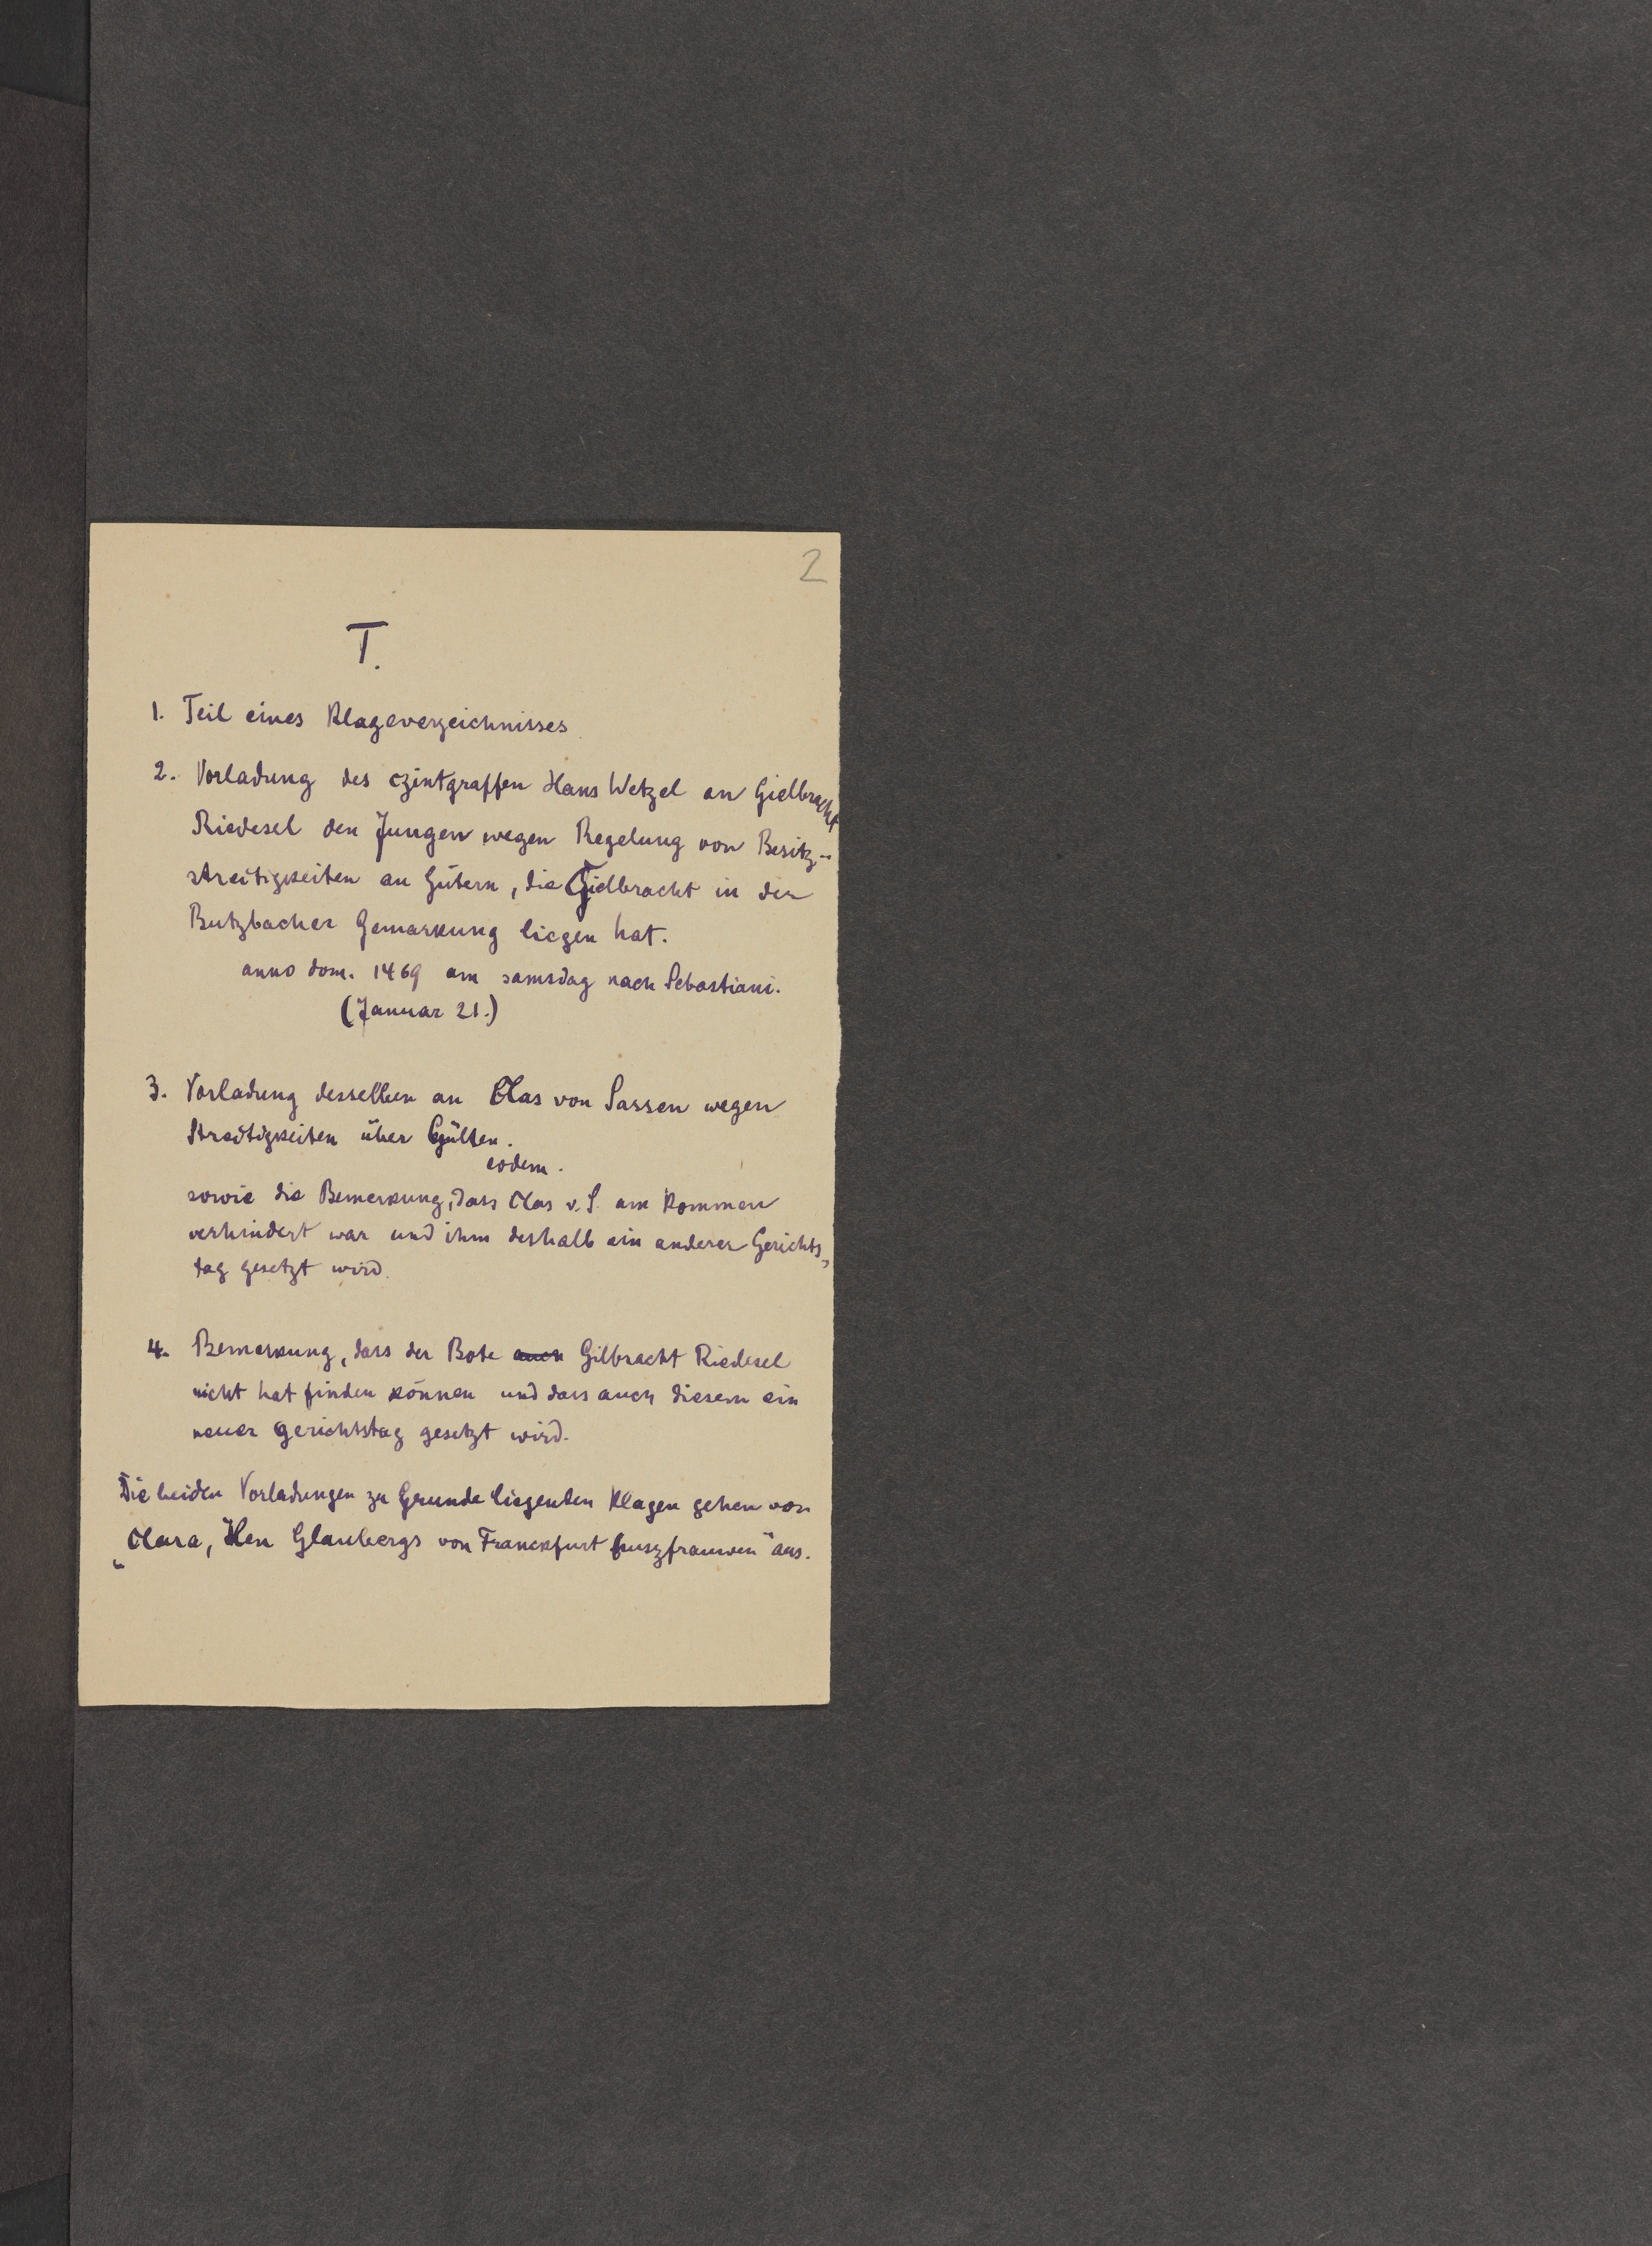 2
T.
1. Teil eines Klageverzeichnisses
2. Vorladung des czintgraffen Hans Wetzel an Gielbracht
Riedesel den Jungen wegen Regelung von Besitz-
streitigkeiten an Gütern, die Gielbracht in der
Butzbacher Gemarkung liegen hat.
anno dom. 1469 am samsdag nach Sebastiani.
(Januar 21.)
3. Vorladung desselben an Clas von Sassen wegen
Streitigkeiten über Gülten.
eodem.
sowie die Bemerkung, dass Clas v. S. am Kommen
verhindert war und ihm deshalb ein anderer Gerichts-
tag gesetzt wird.
4. Bemerkung, dass der Bote auch Gilbracht Riedesel
nicht hat finden können und dass auch diesem ein
neuer Gerichtstag gesetzt wird.
Die beiden Vorladungen zu Grunde liegenden Klagen gehen von
„Clara, Hen Glaubergs von Franckfurt huszfrauwen" aus.